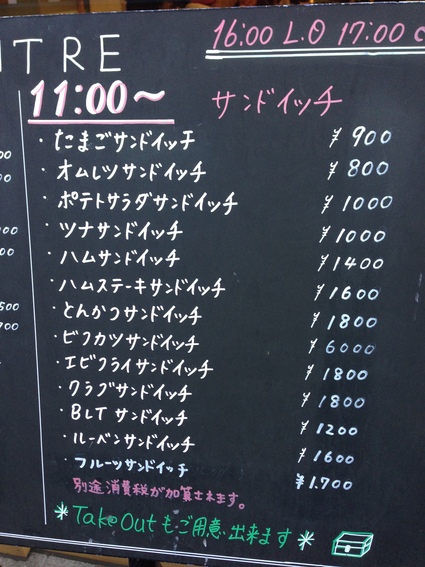 ITRE
16:00 L.O 17:00 C
11:00~ サンドイッチ
・たまごサンドイッチ ¥900
・オムレツサンドイッチ ¥800
・ポテトサラダサンドイッチ ¥1000
・ツナサンドイッチ ¥1000
・ハムサンドイッチ ¥1400
・ハムステーキサンドイッチ ¥1600
・とんかつサンドイッチ ¥1800
・ビフカツサンドイッチ ¥6000
・エビフライサンドイッチ ¥1800
・クラブサンドイッチ ¥1800
・BLTサンドイッチ ¥1200
・ルーベンサンドイッチ ¥1600
・フルーツサンドイッチ ¥1.700
別途消費税が加算されます。
*Take Outもご用意出来ます*